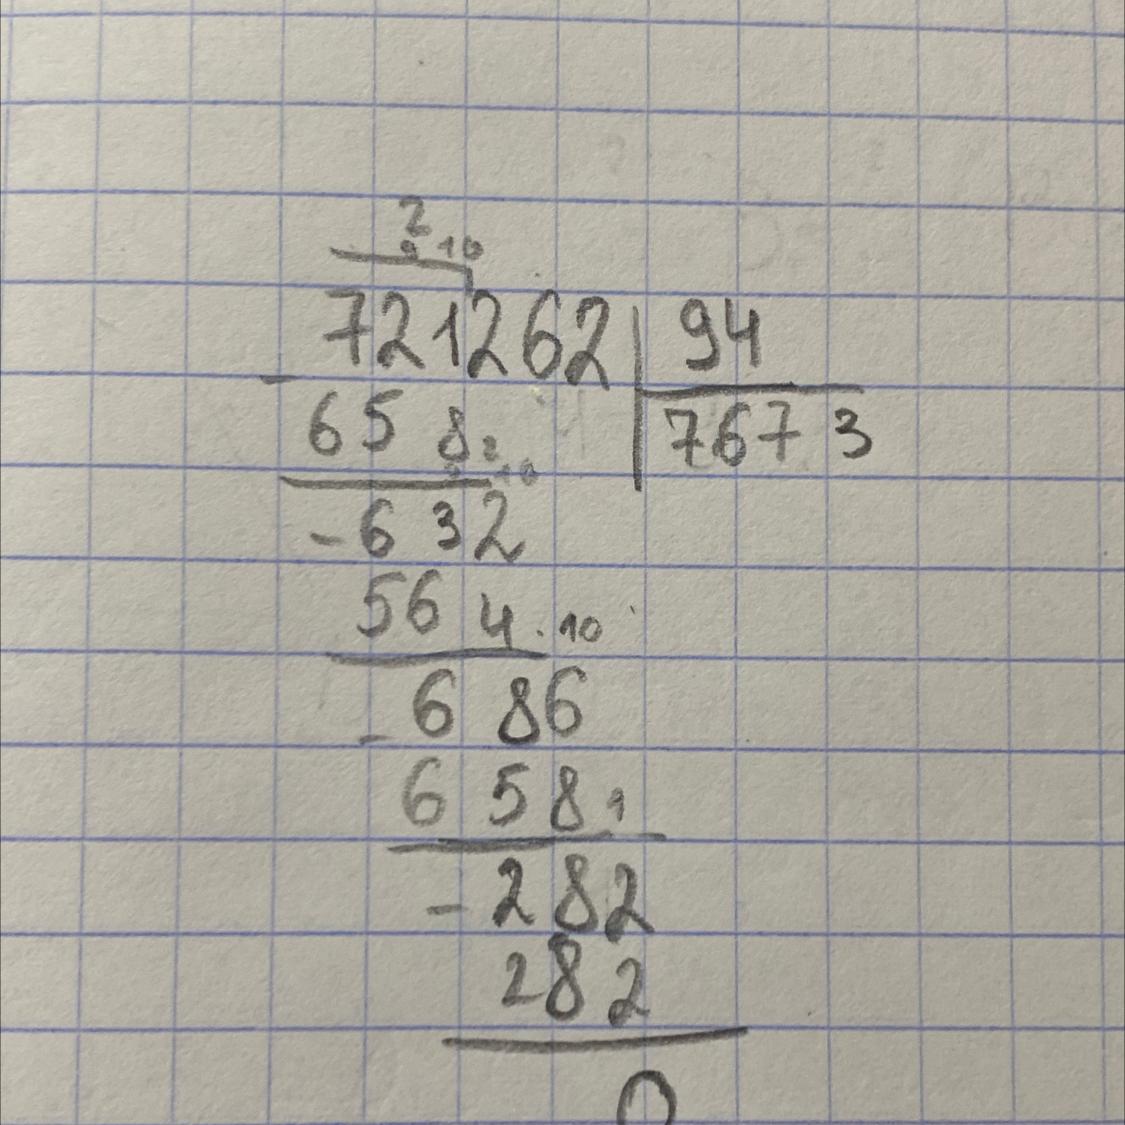 2 10
721262 94
658 2 10 7673
-632
564 . 10
- 686
658 1
- 282
282
0